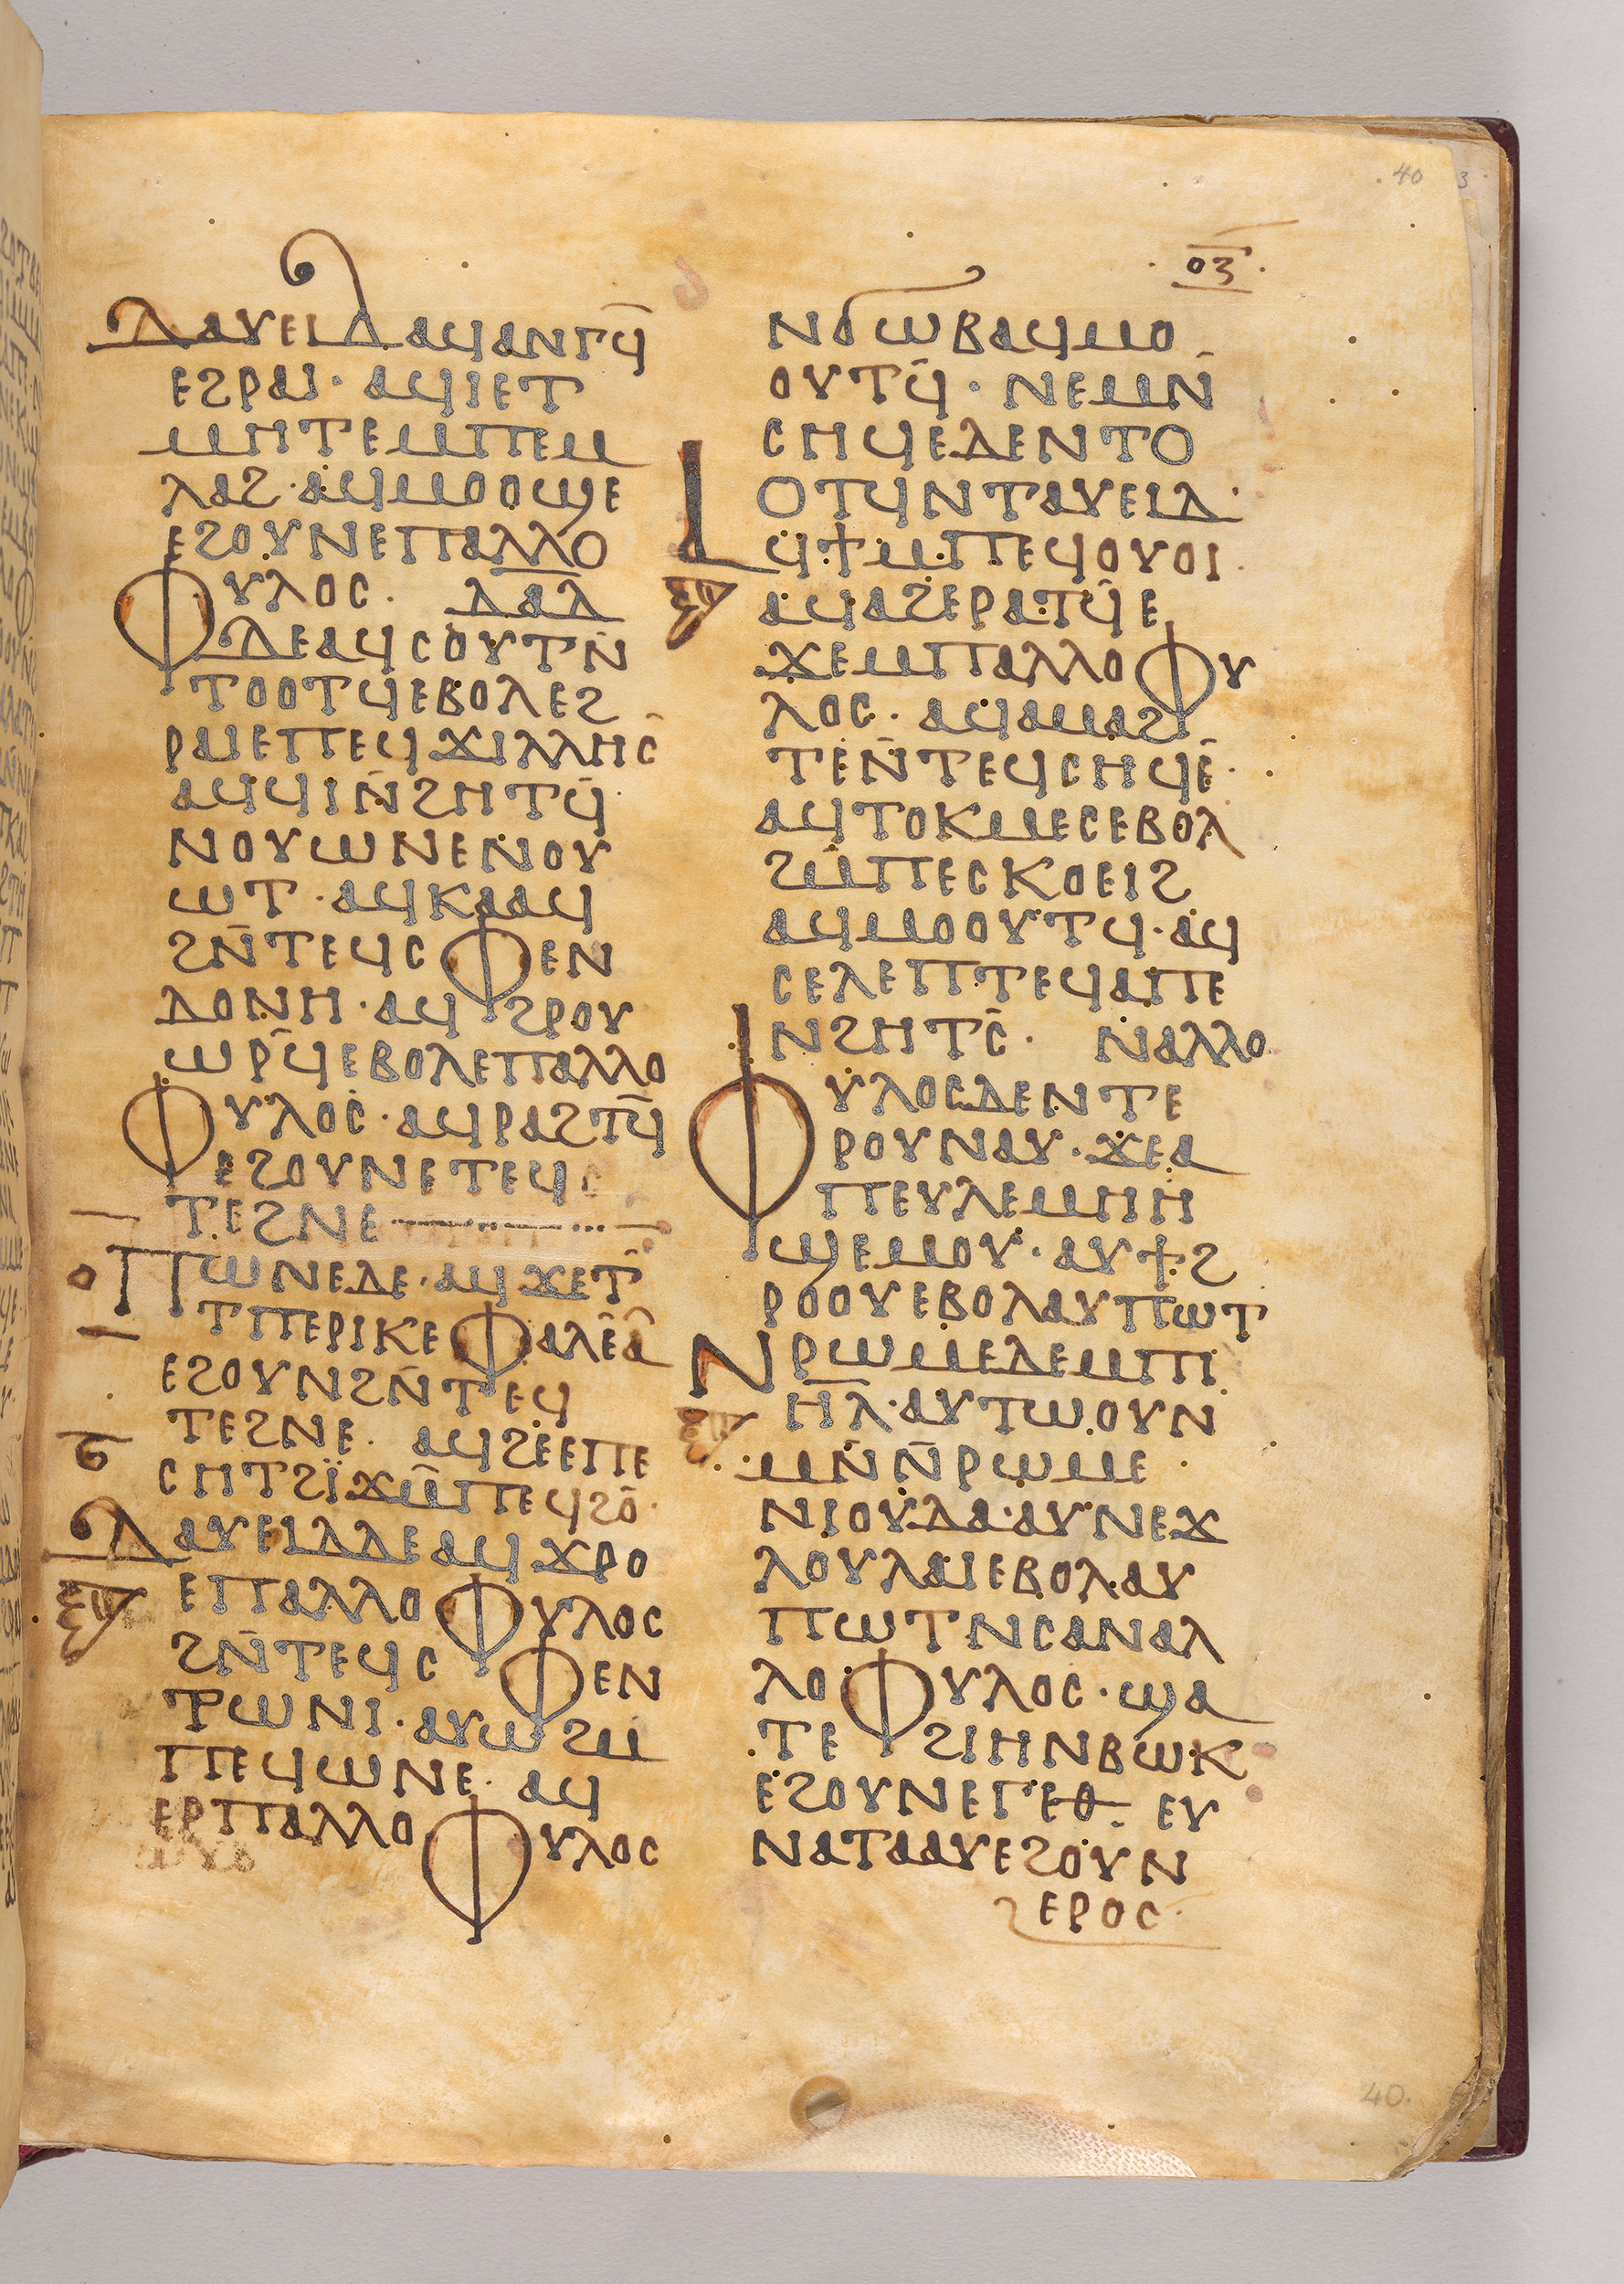 40 3
ⲟⲍ
ⲇⲁⲩⲉⲓⲇⲁϥⲁⲛⲧϥ̄
ⲉϩⲣⲁⲓ· ⲁϥⲓⲉⲧ
ⲙⲏⲧⲉⲙⲡⲉⲙ
ⲗⲁϩ·ⲁϥⲙⲟⲟϣⲉ
ⲉϩⲟⲩⲛⲉⲡⲁⲗⲗⲟ
ⲫⲩⲗⲟⲥ· ⲇⲁⲇ
ⲇⲉⲁϥⲥⲟⲩⲧⲛ̄
ⲧⲟⲟⲧϥⲉⲃⲟⲗⲉϩ
ⲣⲁⲓⲉⲡⲉϥϫⲓⲗⲗⲏⲥ
ⲁϥϥⲓⲛ̄ϩⲏⲧϥ̄
ⲛⲟⲩⲱⲛⲉⲛⲟⲩ
ⲱⲧ·ⲁϥⲕⲁⲁϥ
ϩⲛ̄ⲧⲉϥⲥⲫⲉⲛ
ⲇⲟⲛⲏ·ⲁϥϩⲣⲟⲩ
ⲱⲣϥ̄ⲉⲃⲟⲗⲉⲡⲁⲗⲗⲟ
ⲫⲩⲗⲟⲥ·ⲁϥⲣⲁϩⲧϥ̄
ⲉϩⲟⲩⲛⲉⲧⲉϥ
ⲧⲉϩⲛⲉ
ⲡⲱⲛⲉⲇⲉ·ⲁϥϫⲉⲧ
ⲧⲡⲉⲣⲓⲕⲉⲫⲁⲗⲉⲁ
ⲉϩⲟⲩⲛϩⲛ̄ⲧⲉϥ
ⲧⲉϩⲛⲉ· ⲁϥϩⲉⲉⲡⲉ
ⲥⲏⲧϩⲓ̈ϫⲙ̄ⲡⲉϥϩⲟ·
ⲇⲁⲩⲉⲓⲇⲇⲉⲁϥϫⲣⲟ
ⲉⲡⲁⲗⲗⲟⲫⲩⲗⲟⲥ
ϩⲛ̄ⲧⲉϥⲥⲫⲉⲛ
ⲧⲱⲛⲓ·ⲁⲩⲱϩⲙ
ⲡⲉϥⲱⲛⲉ· ⲁϥ
ⲉⲣⲡⲁⲗⲗⲟⲫⲩⲗⲟⲥ
ⲛϭⲱⲃⲁϥⲙⲟ
ⲟⲩⲧϥ̄·ⲛⲉⲙⲛ̄
ⲥⲏϥⲉⲇⲉⲛⲧⲟ
ⲟⲧϥⲛⲧⲁⲩⲉⲓⲇ·
ϥϯⲙⲡⲉϥⲟⲩⲟⲓ·
ⲁϥⲁϩⲉⲣⲁⲧϥ̄ⲉ
ϫⲉⲙⲡⲁⲗⲗⲟⲫⲩ
ⲗⲟⲥ·ⲁϥⲁⲙⲁϩ
ⲧⲉⲛ̄ⲧⲉϥⲥⲏϥⲉ·
ⲁϥⲧⲟⲕⲙⲉⲥⲉⲃⲟⲗ
ϩⲙ̄ⲡⲉⲥⲕⲟⲉⲓϩ
ⲁϥⲙⲟⲟⲩⲧϥ·ⲁϥ
ⲥⲉⲗⲉⲡⲧⲉϥⲁⲡⲉ
ⲛϩⲏⲧⲥ̄· ⲛⲁⲗⲗⲟ
ⲫⲩⲗⲟⲥⲇⲉⲛⲧⲉ
ⲣⲟⲩⲛⲁⲩ·ϫⲉⲁ
ⲡⲉⲩⲗⲉⲙⲏⲏ
ϣⲉⲙⲟⲩ·ⲁⲩϯϩ
ⲣⲟⲟⲩⲉⲃⲟⲗⲁⲩⲡⲱⲧ
ⲛⲣⲱⲙⲉⲇⲉⲙⲡⲓ
ⲏ̄ⲗ·ⲁⲩⲧⲱⲟⲩⲛ
ⲙⲛ̄ⲛ̄ⲣⲱⲙⲉ
ⲛⲓⲟⲩⲇⲁ·ⲁⲩⲛⲉϫ
ⲗⲟⲩⲗⲁⲓⲉⲃⲟⲗⲁⲩ
ⲡⲱⲧⲛⲥⲁⲛⲁⲗ
ⲗⲟⲫⲩⲗⲟⲥ·ϣⲁ
ⲧⲉϩⲓⲏⲛⲃⲱⲕ
ⲉϩⲟⲩⲛⲉⲅⲉⲑ· ⲉⲩ
ⲛⲁⲧⲁⲁⲩⲉϩⲟⲩⲛ
ⲉⲣⲟⲥ·
40.